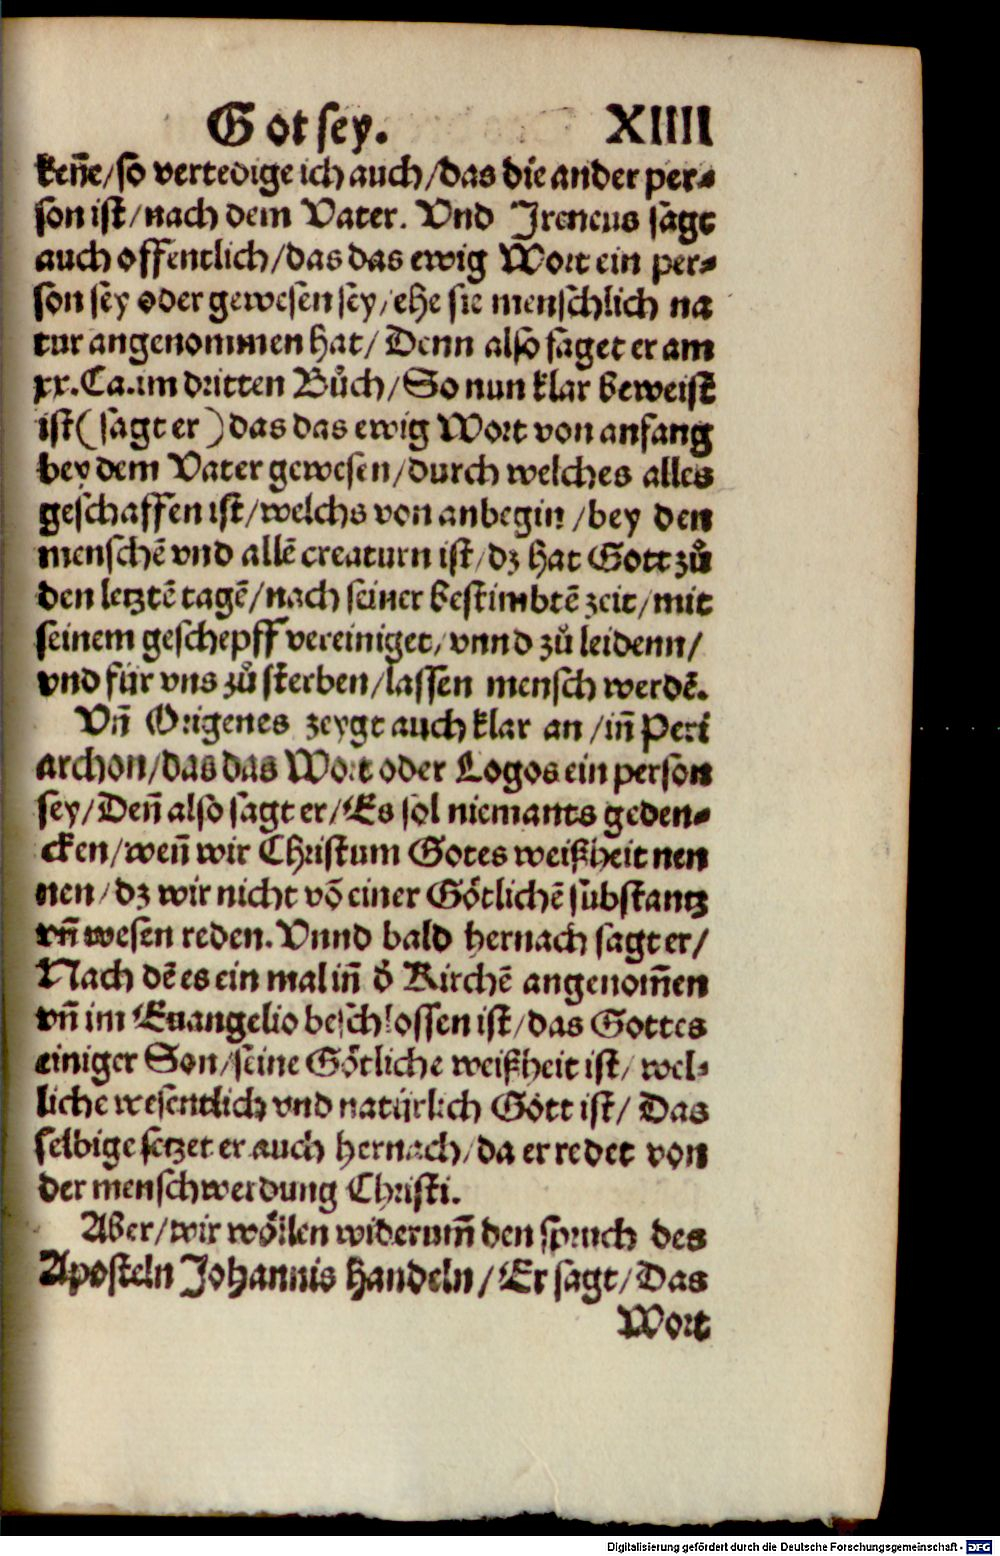 Got sey. XIIII
keñe/so vertedige ich auch/das die ander per-
son ist/nach dem Vater. Vnd Ireneus sagt
auch offentlich/das das ewig Wort ein per-
son sey oder gewesen sey/ehe sie menschlich na
tur angenommen hat/Denn also saget er am
xx.Ca.im dritten Bůch/So nun klar beweist
ist(sagt er)das das ewig Wort von anfang
bey dem Vater gewesen/durch welches alles
geschaffen ist/welchs von anbegin/bey den
menschẽ vnd allẽ creaturn ist/dz hat Gott zů
den letztẽ tagẽ/nach seiner bestimbtẽ zeit/mit
seinem geschepff vereiniget/vnnd zů leidenn/
vnd für vns zů sterben/lassen mensch werdẽ.
Vñ Origenes zeygt auch klar an/iñ Peri
archon/das das Wort oder Logos ein person
sey/Deñ also sagt er/Es sol niemants geden-
cken/weñ wir Christum Gotes weißheit nen
nen/dz wir nicht võ einer Götlichẽ substantz
vñ wesen reden. Vnnd bald hernach sagt er/
Nach dẽ es ein mal iñ d̓ Kirchẽ angenom̃en
vñ im Euangelio beschlossen ist/das Gottes
einiger Son/seine Götliche weißheit ist/wel-
liche wesentlich vnd natürlich Gott ist/Das
selbige setzet er auch hernach/da er redet von
der menschwerdung Christi.
Aber/wir wöllen widerum̃ den spruch des
Aposteln Johannis handeln/Er sagt/Das
Wort
Digitalisierung gefördert durch die Deutsche Forschungsgemeinschaft - DFG